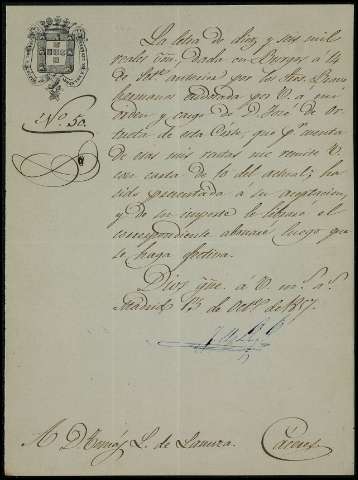 La letra de diez y seis mil
reales vn, dada en Burgos á 14
de Setre anterior por los Sres.
hermanos endosada por V. a mi
orden y cargo de D. José de
de esta Corte, que pr cuenta
de esas mis rentas me remite V.
con carta de 10 del actual; ha
sido presentada á su aceptacion,
y de su importe le libraré el
correspondiente abonaré luego que
se haga efectiva.
No. 50
Dios gue. á V. ms. as.
Madrid 13 de Octe. de 1857.
A D. Ramon L. de Lanuza.
Cáceres